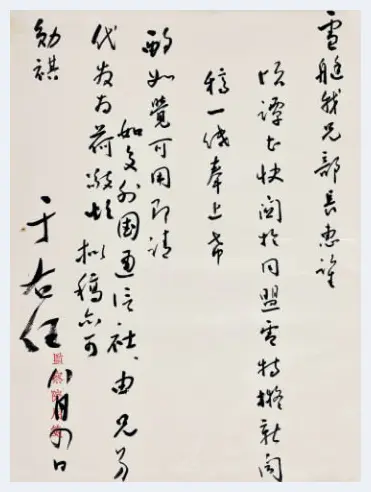 雪艇我兄部長惠鑒
頃關於同盟電特擬新聞
稿一紙奉上希
酌如覺可用即請
代發為荷敬頌
如交外國通信社、由兄另
擬稿亦可
勛祺
于右任
八月四日
監察院用箋